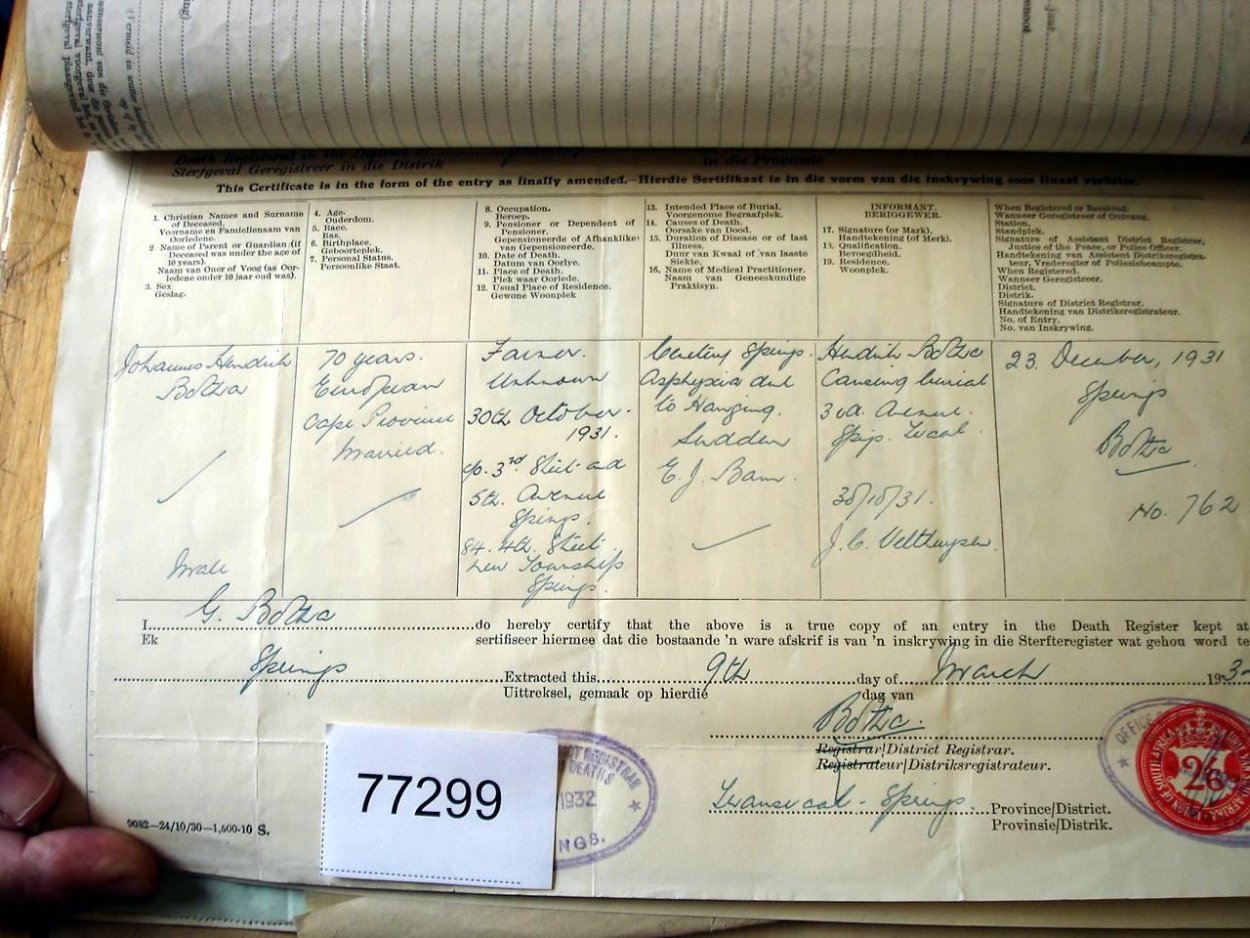 Death Registered in the District of
Sterfgeval Geregistreer in die Distrik
in die Provinsie
This Certificate is in the form of the entry as finally amended.—Hierdie Sertifikaat is in die vorm van die inskrywing soos finaal verbeter.
1. Christian Names and Surname
of Deceased.
Voorname en Familienaam van
Oorledene.
2 Name of Parent or Guardian (if
Deceased was under the age of
10 years).
Naam van Ouer of Voog (as Oor-
ledene onder 10 jaar oud was).
3. Sex
Geslag.
4. Age.
Ouderdom.
5. Race.
Ras.
6. Birthplace.
Geboorteplek.
7. Personal Status.
Persoonlike Staat.
8. Occupation.
Beroep.
9. Pensioner or Dependent of
Pensioner.
Gepensioneerde of Afhanklike
van Gepensioneerde.
10. Date of Death.
Datum van Oorlye.
11. Place of Death.
Plek waar Oorlede.
12. Usual Place of Residence.
Gewone Woonplek
13. Intended Place of Burial.
Voorgenome Begraafplek.
14. Causes of Death.
Oorsake van Dood.
15. Duration of Disease or of last
Illness.
Duur van Kwaal of van laaste
Siekte.
16. Name of Medical Practitioner.
Naam van Geneeskundige
Praktisyn.
INFORMANT.
BERIGGEWER.
17. Signature (or Mark).
Handtekening (of Merk).
18. Qualification.
Bevoegdheid.
19. Residence.
Woonplek.
When Registered or Received.
Wanneer Geregistreer of Ontvang.
Station.
Standplek.
Signature of Assistant District Registrar,
Justice of the Peace, or Police Officer.
Handtekening van Assistent Distriksregistra-
teur, Vrederegter of Polisiebeampte.
When Registered.
Wanneer Geregistreer.
District.
Distrik.
Signature of District Registrar.
Handtekening van Distriksregistrateur.
No. of Entry.
No. van Inskrywing.
Johannes Hendrik
Botha
Male
70 years.
European
Cape Province
Married.
Farmer.
Unknown
30th October
1931.
3rd Street and
5th. Avenue
Springs.
84. 4th. Street
New Township
Springs.
Cemetery Springs.
Asphyxia due
to Hanging.
Sudden
E. J. Bam.
Hendrik Botha
Causing burial
3rd. Avenue.
30/10/31.
J. C. Velthuysen.
23. December, 1931
Springs
Botha
No. 762
I G. Botha do hereby certify that the above is a true copy of an entry in the Death Register kept at
Ek sertifiseer hiermee dat die bostaande 'n ware afskrif is van 'n inskrywing in die Sterfteregister wat gehou word te
Springs Extracted this 9th day of March 1932
Uittreksel, gemaak op hierdie dag van
Botha.
Registrar/District Registrar.
Registrateur/Distriksregistrateur.
Transvaal - Springs Province/District.
Provinsie/Distrik.
9082—24/10/30—1,500-10 S.
77299
1932
NGS.
OFFICE
2/6